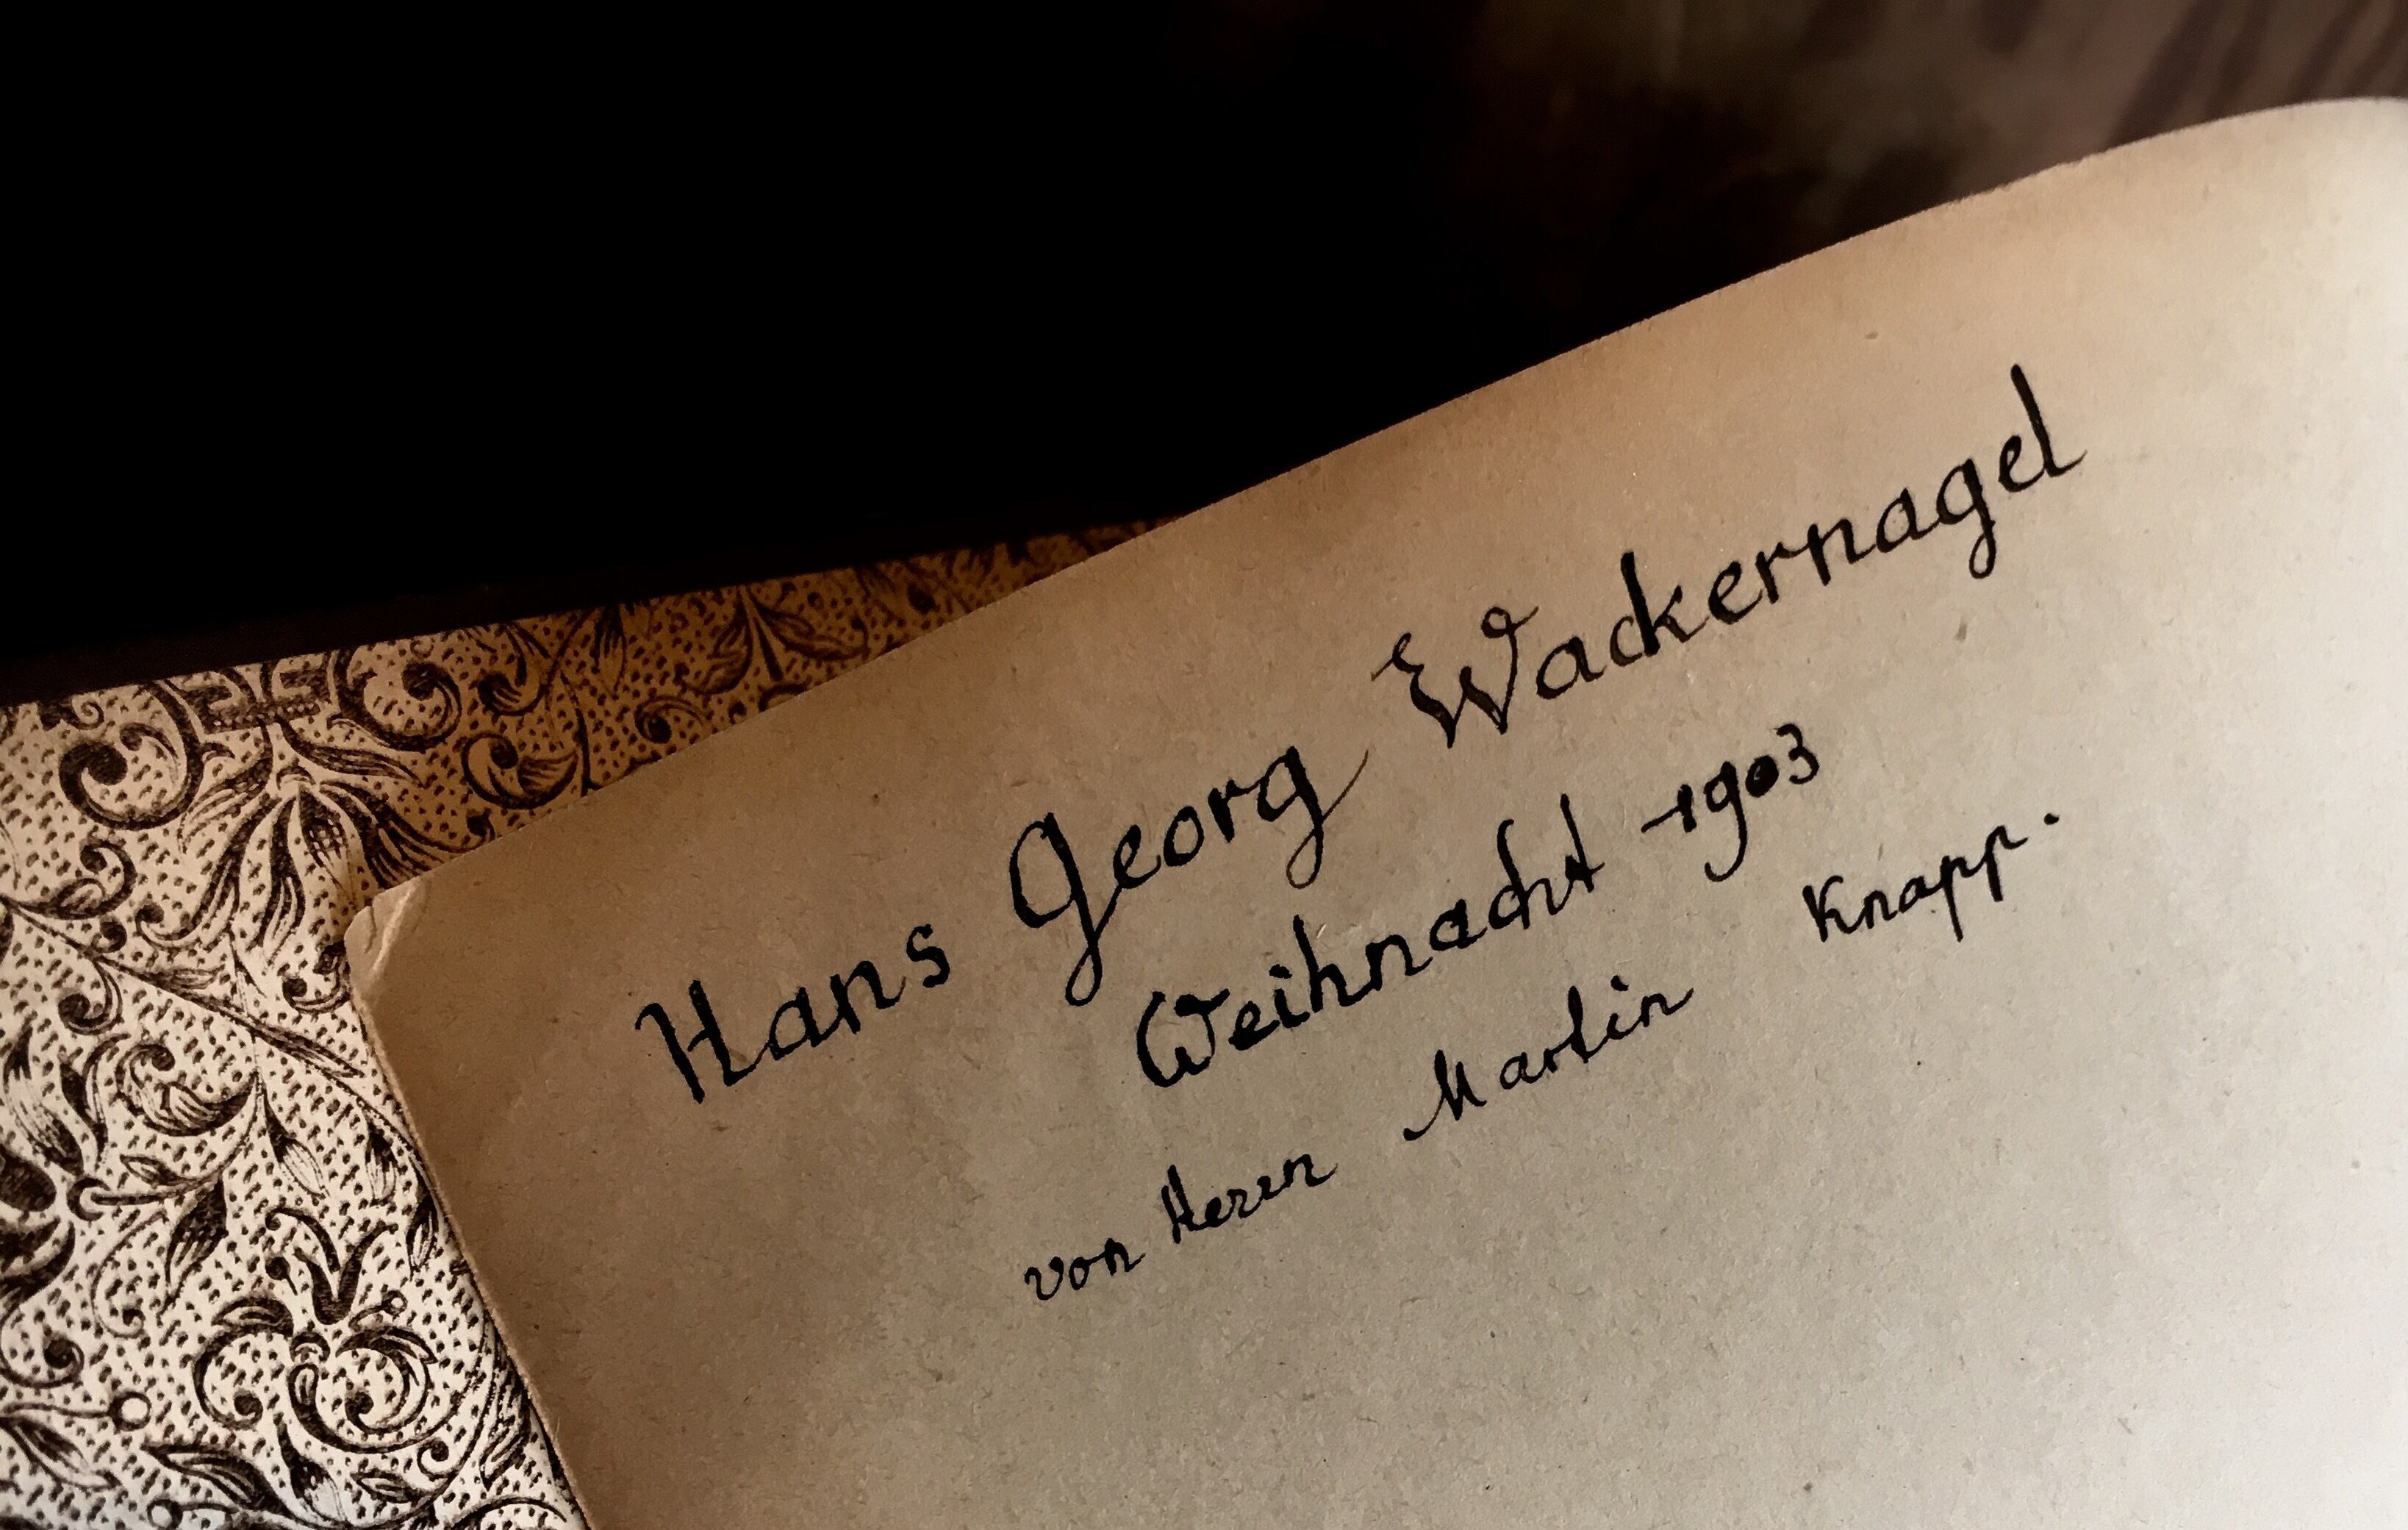 Hans Georg Wackernagel
Weihnacht 1903
von Herrn Martin Knapp.